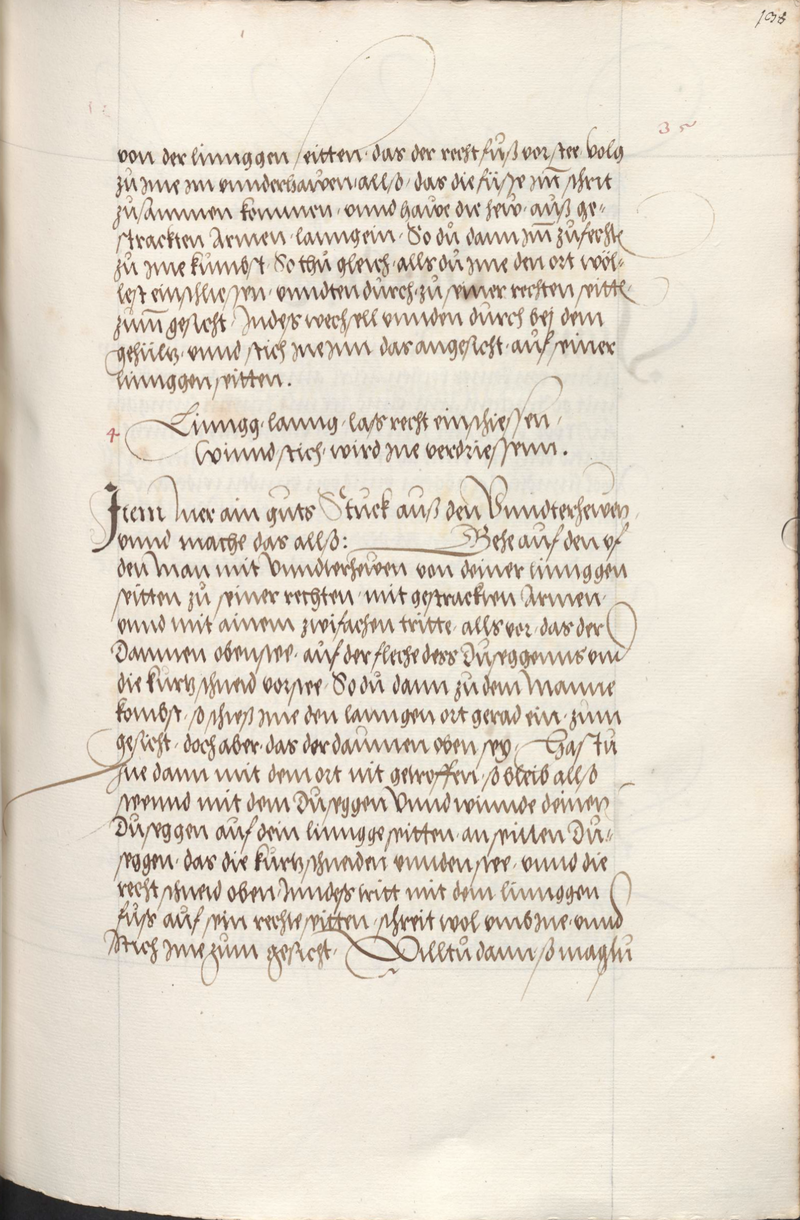 138
35
von der linnggen seitten · das der recht fuß vor stee · volg
zu ime im unnderhawen · allso · das die füsse im̄ schrit
zusammen kommen · unnd hawe die hew · auß ge=
strackten Armen · lanng ein · So du dann im̄ zufechten
zu ime kumbst · So thu gleich · alls du ime den ort wöl=
lest einschiessen · unndten durch · zu seiner rechten seitten
zum̄ gesicht · Indes wechsell unnden durch bej dem
gehiiltz · unnd stich ime inn das angesicht · auf seiner
linnggen seitten .
4
Linngg · lanng · lass recht einschiessen ·
Winnd stich · wird ine verdriessenn .
Item Mer ain guts Stuck auß den Unndterhewen ·
unnd mache das allso : Gehe auf den uf
den Man mit Unndterhewen von deiner linnggen
seitten zu seiner rechten · mit gestrackten Armen ·
unnd mit ainem zwifachen tritte · alls vor · das der
Daumen oben stee · auf der fleche dess Duseggenns und
die kurtz schneid vor stee · So du dann zu dem Manne
kombst · so schieß ime den lanngen ort gerad ein · zum
gesicht · doch aber · das der daumen oben sey · Hastu
ine dann mit dem ort nit getroffen · so bleib allso
steennd mit dem Duseggen Unnd winnde deinen
Duseggen auf dein linngge seitten · an seinen Du=
seggen · das die kurtz schneiden unnden stee · unnd die
recht schneid oben Inndes tritt mit dem linnggen
fuss auf sein rechte seitten · schreit wol umb ine · unnd
Stich ime zum gesicht · Willtu dann so magstu